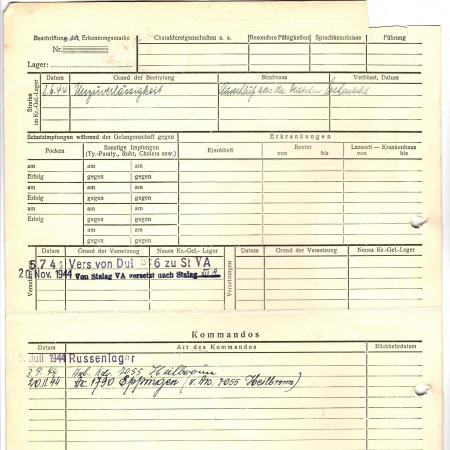 Beschriftung der Erkennungsmarke
Nr.
Lager:
Charaktereigenschaften u. a.
Besondere Fähigkeiten
Sprachkenntnisse
Führung
Strafen im Kr.-Gef.-Lager
Datum
Grund der Bestrafung
Strafmass
Verbüsst, Datum
2.6.44
Unzuverlässigkeit
Ausschluß aus der
Schutzimpfungen während der Gefangenschaft gegen
Erkrankungen
Pocken
Sonstige Impfungen
(Ty.-Paraty., Ruhr, Cholera usw.)
Krankheit
Revier
von bis
Lazarett — Krankenhaus
von bis
am am am
Erfolg gegen gegen
am am am
Erfolg gegen gegen
am am am
Erfolg gegen gegen
am am
gegen gegen
Versetzungen
Datum
Grund der Versetzung
Neues Kr.-Gef.-Lager
Versetzungen
Datum
Grund der Versetzung
Neues Kr.-Gef.-Lager
5 7 4 Vers von Dul 376 zu St VA
20. Nov. 1944 Von Stalag VA versetzt nach Stalag
Kommandos
Datum
Art des Kommandos
Rückkehrdatum
5. Juli 1944 Russenlager
2.9.44 Arb. Kdo. 7055 Heilbronn
20.11.44 1790 Eppingen (v. Ko. 7055 Heilbronn)